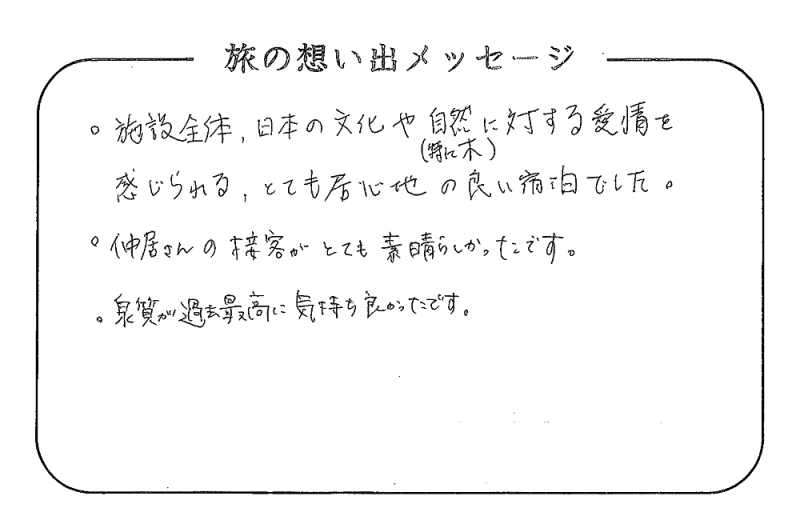 旅の想い出メッセージ
。施設全体,日本の文化や自然に対する愛情を
(特に木)
感じられる,とても居心地の良い宿泊でした。
。仲居さんの接客がとても素晴らしかったです。
。泉質が過去最高に気持ち良かったです。